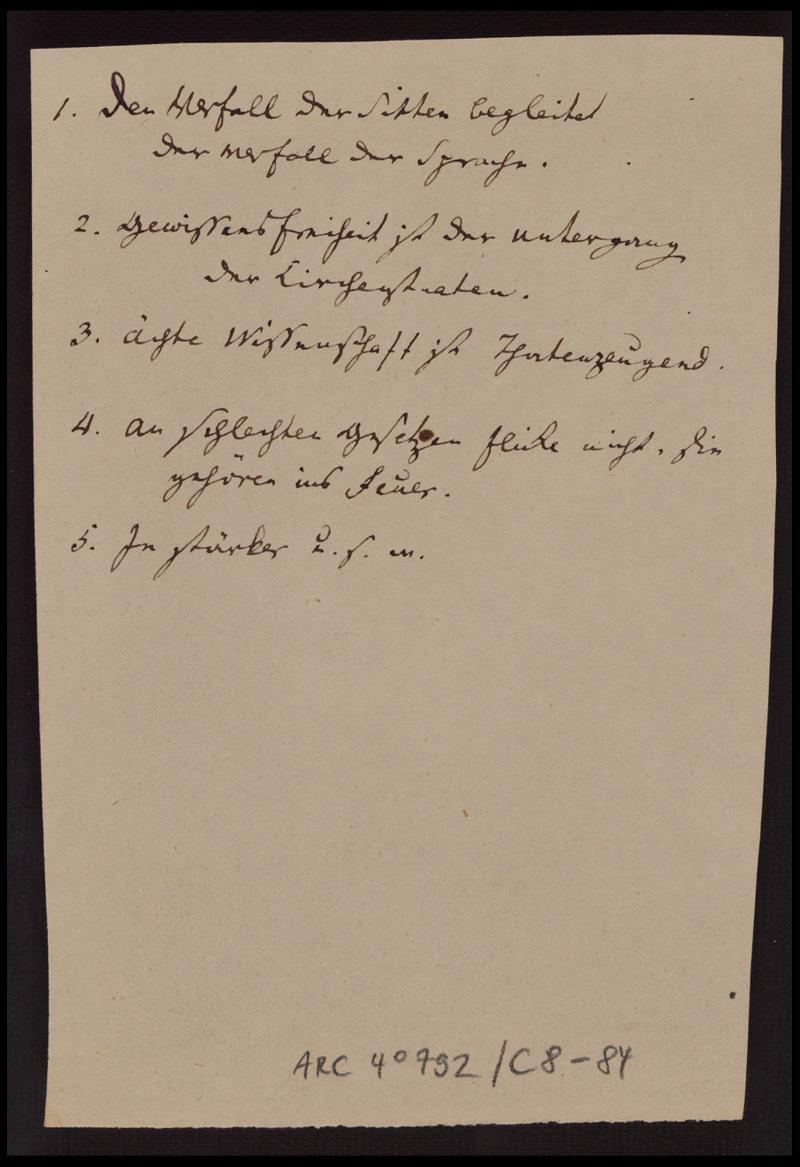 1. Den Verfall der Sitten begleitet
der Verfall der Sprache.
2. Gewissensfreiheit ist der Untergang
der Kirchenstaaten.
3. ächte Wissenschaft ist Thatenzeugend.
4. An schlechten Gesetzen flicke nicht. Sie
gehören ins Feuer.
5. Je stärker u. s. w.
ARC 4° 792 / C 8 - 84